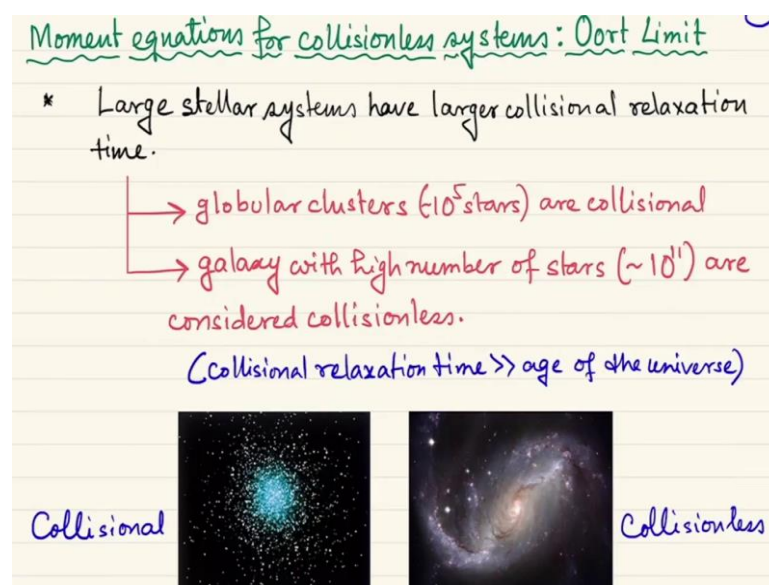 Moment equations for collisionless systems : Oort Limit
* Large stellar systems have larger collisional relaxation
time.
→ globular clusters (~10⁵ stars) are collisional
→ galaxy with high number of stars (~ 10¹¹) are
considered collisionless.
(collisional relaxation time >> age of the universe)
Collisional
Collisionless